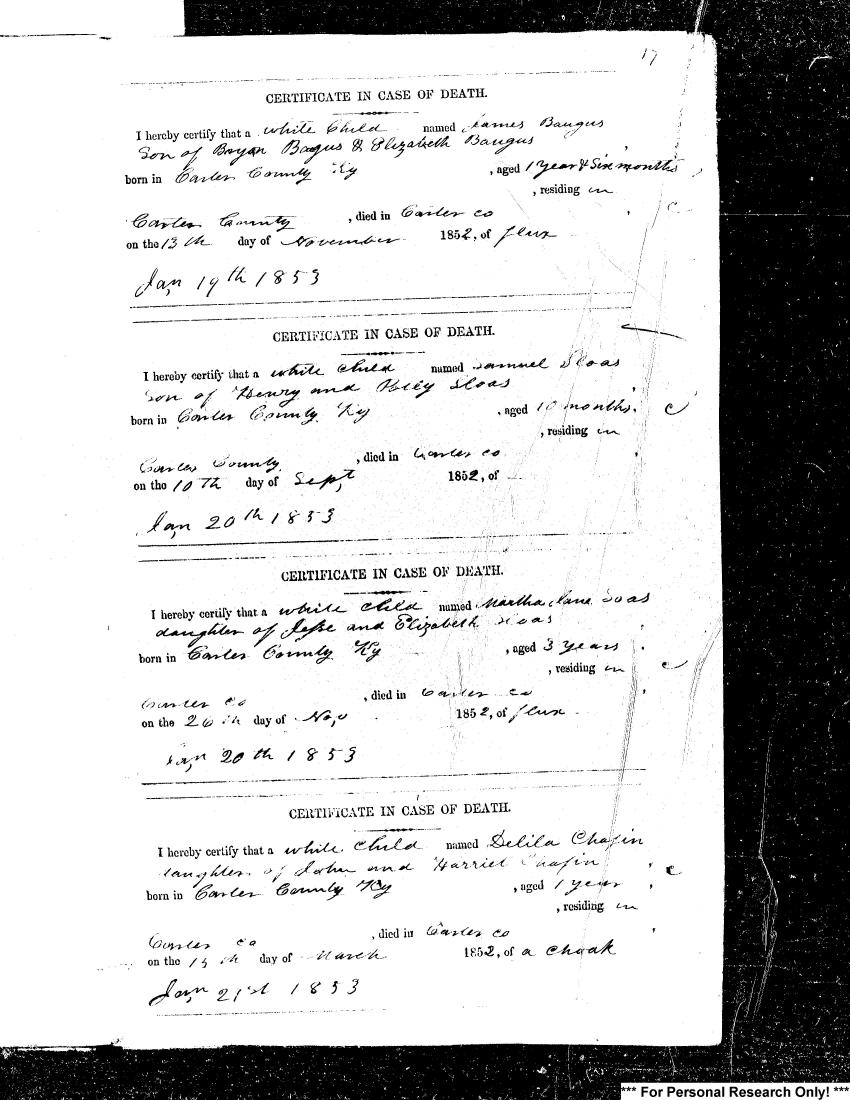 17
CERTIFICATE IN CASE OF DEATH.
I hereby certify that a white Child named James Baugus
Son of Bryan Bagus & Elizabeth Baugus
born in Carter County Ky , aged 1 Year & Six months
, residing in
Carter County , died in Carter co
on the 13th day of November 1852, of flux
Jan, 19th 1853
CERTIFICATE IN CASE OF DEATH.
I hereby certify that a white child named Samuel Sloas
son of Henry and Sloas
born in Carter County Ky , aged 10 months.
, residing in
Carter County , died in Carter co
on the 10th day of Sept, 1852, of
Jan, 20th 1853
CERTIFICATE IN CASE OF DEATH.
I hereby certify that a white child named Martha Jane
daughter of Jesse and Elizabeth
born in Carter County Ky , aged 3 Years
, residing in
Carter co , died in Carter co
on the 26th day of Nov 1852, of flux
Jan 20th 1853
CERTIFICATE IN CASE OF DEATH.
I hereby certify that a white child named Delila Chafin
daughter of John and Harriet Chafin
born in Carter County Ky , aged 1 year
, residing in
Carter co , died in Carter co
on the 15th day of March 1852, of a choak
Jan, 21st 1853
*** For Personal Research Only! ***